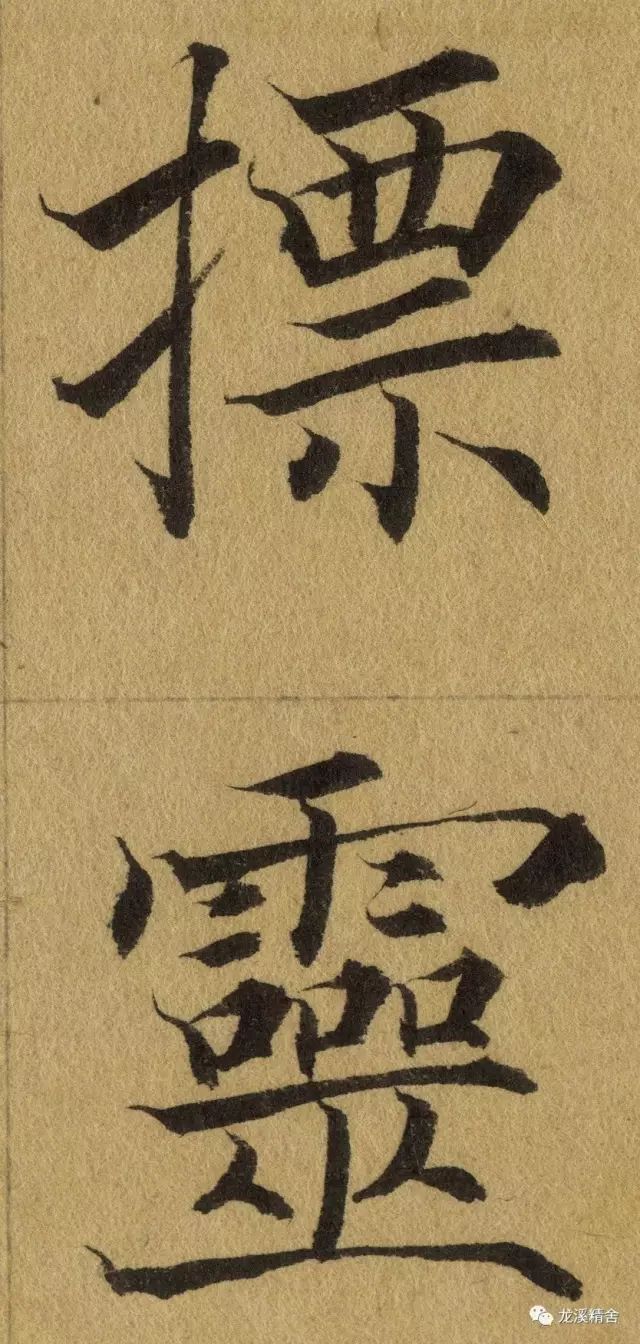 摽靈
龙溪精舍